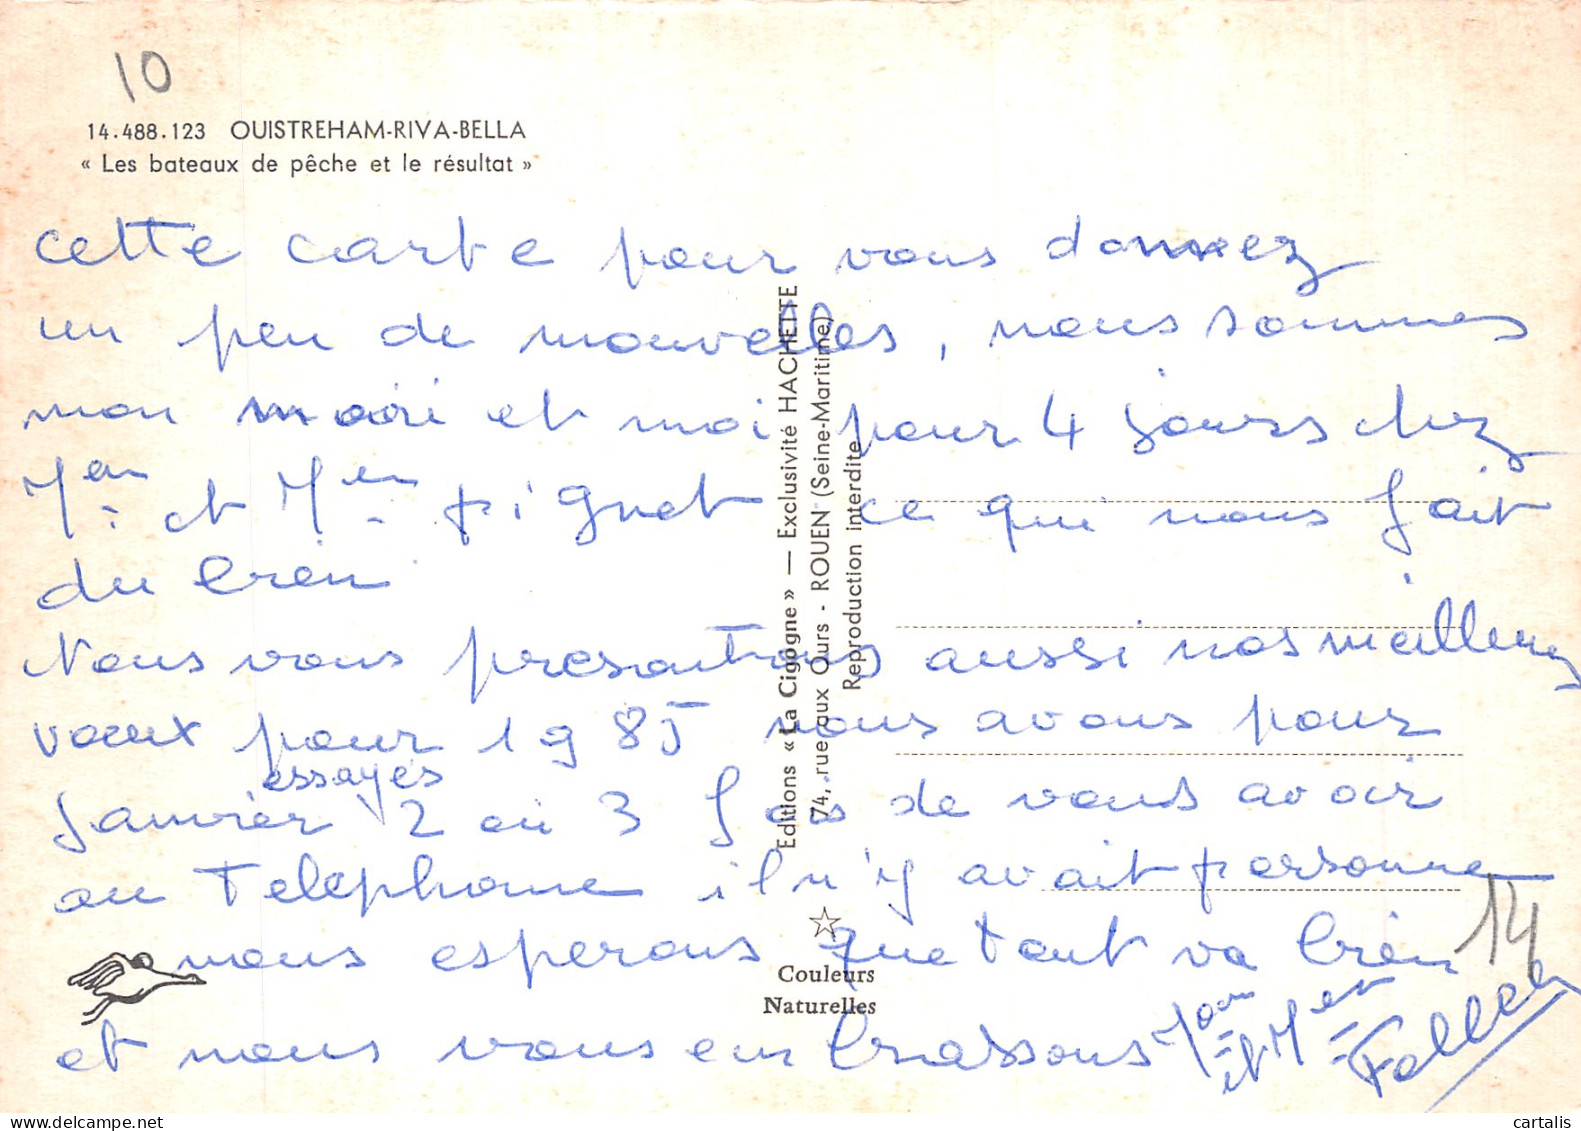 10
14.488.123 OUISTREHAM-RIVA-BELLA
« Les bateaux de pêche et le résultat »
cette carte pour vous donnez
un peu de nouvelles, nous sommes
mon mari et moi pour 4 jours chez
et pignet ce qui nous fait
du bien
Nous vous presentons aussi nos meilleurs
vœux pour 1985 nous avons pour
essayés
Janvier 2 ou 3 fois de vous avoir
au Telephone il n'y avait personne
nous esperons que tout va bien
et nous vous embrassons
et
14
Editions « La Cigogne » — Exclusivité HACHETTE
74, rue aux Ours - ROUEN (Seine-Maritime)
Reproduction interdite
Couleurs
Naturelles
cartalis